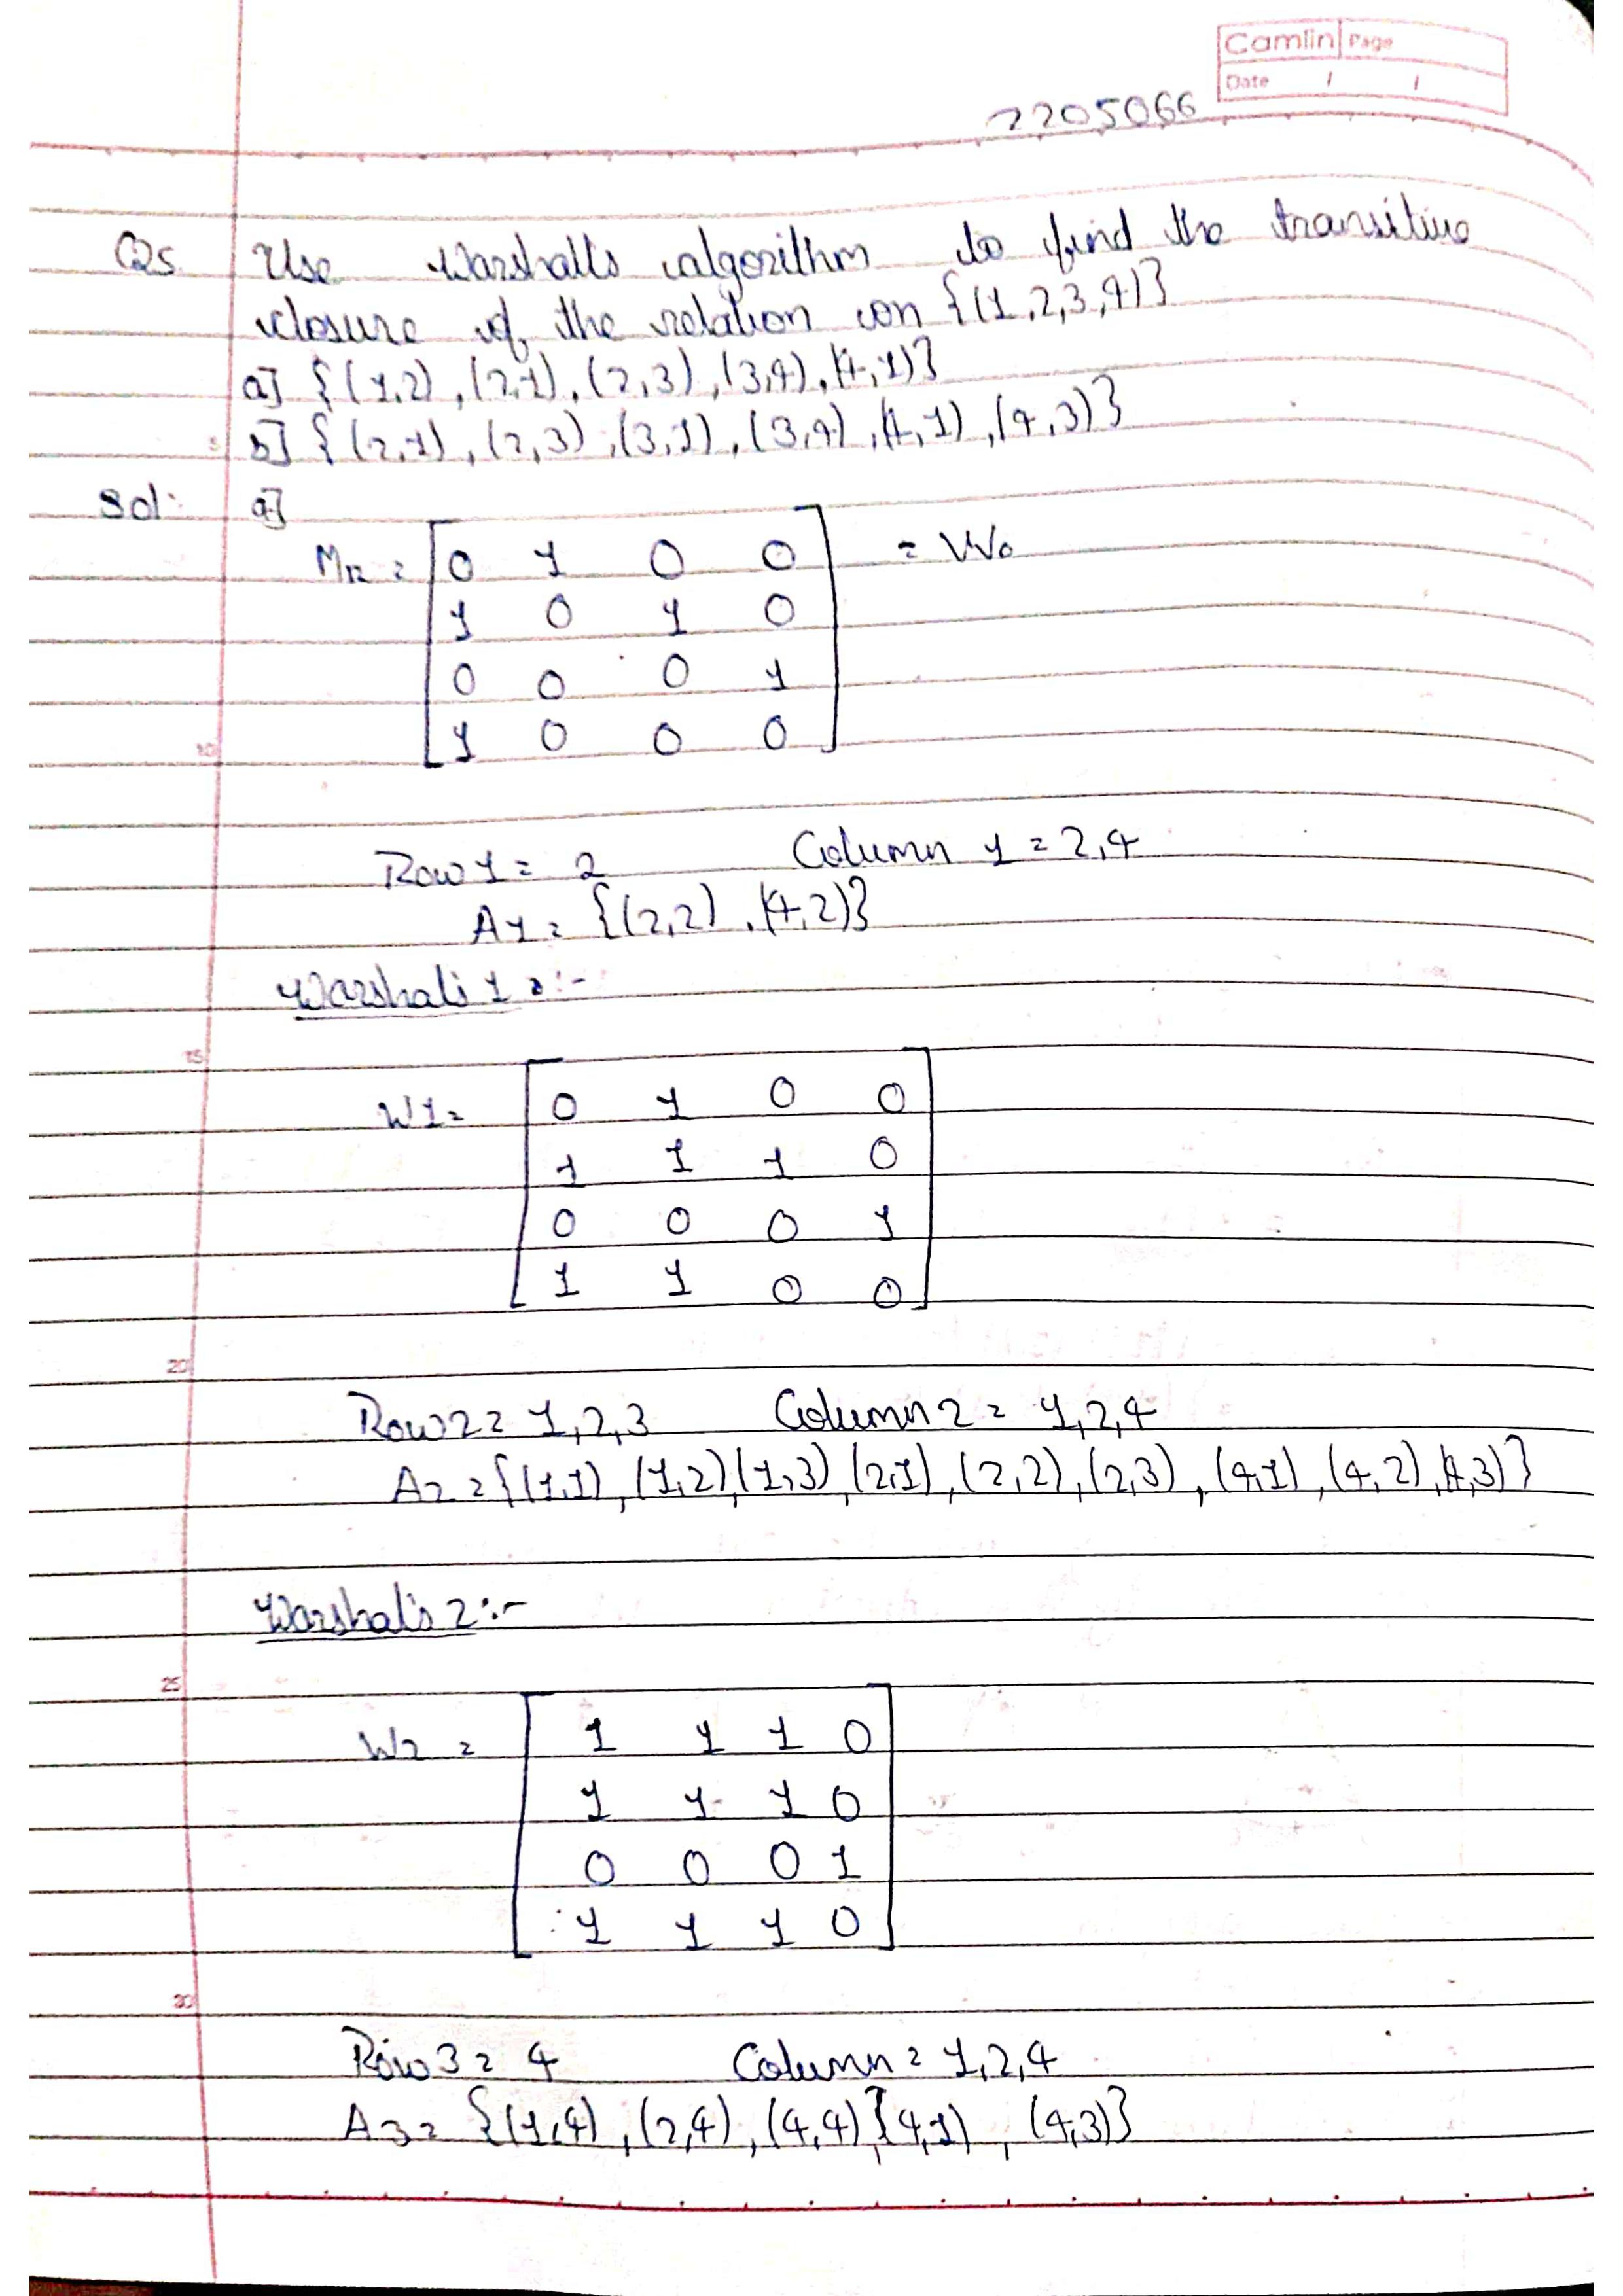 Camlin Page
Date / /
2205066
Q5 Use Warshall's algorithm to find the transitive
closure of the relation on {(1,2,3,4)}
a] {(1,2), (2,1), (2,3), (3,4), (4,1)}
b] {(2,1), (2,3), (3,1), (3,4), (4,1), (4,3)}
Sol: a]
MR = 0 1 0 0 = W0
1 0 1 0
0 0 0 1
10
1 0 0 0
Row 1 = 2 Column 1 = 2,4
A1 = {(2,2), (4,2)}
Warshal's 1 :-
15
W1 = 0 1 0 0
1 1 1 0
0 0 0 1
1 1 0 0
20
Row 2 = 1,2,3 Column 2 = 1,2,4
A2 = {(1,1), (1,2), (1,3), (2,1), (2,2), (2,3), (4,1), (4,2), (4,3)}
Warshal's 2 :-
25
W2 = 1 1 1 0
1 1 1 0
0 0 0 1
1 1 1 0
30
Row 3 = 4 Column = 1,2,4
A3 = {(1,4), (2,4), (4,4)} (4,1), (4,3)}